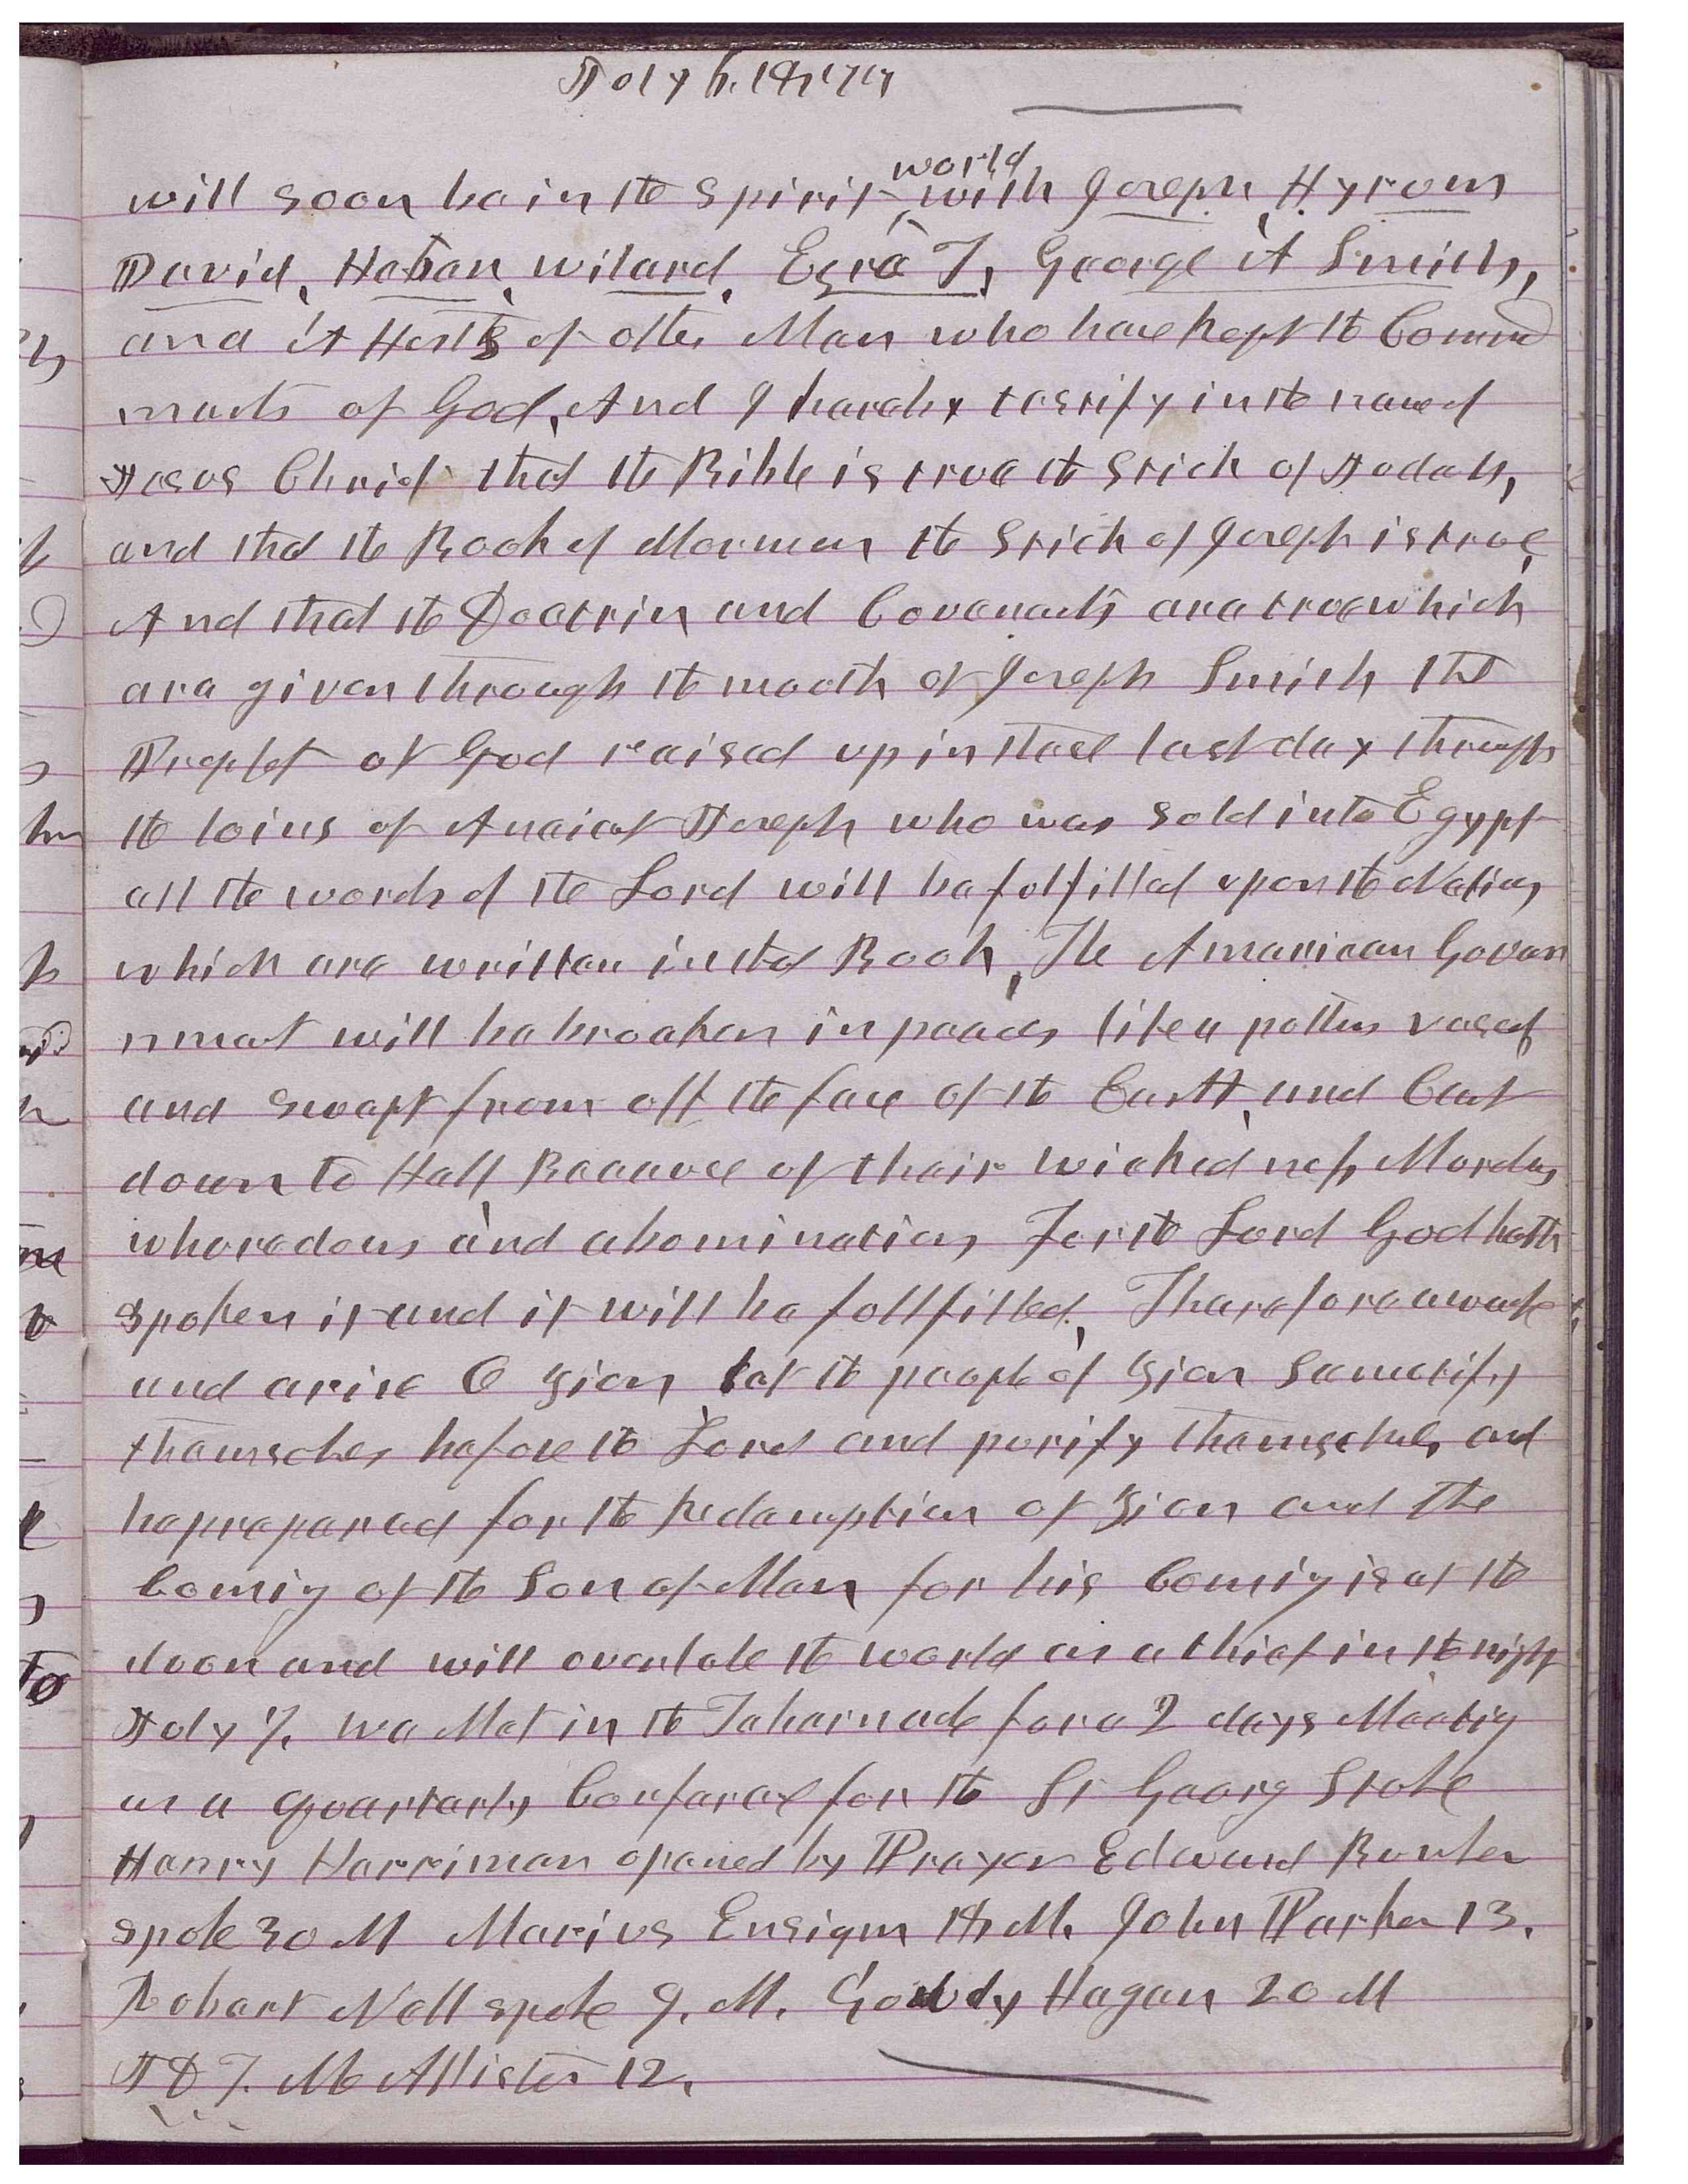 July 6. 1877
will soon be in the spirit world with Joseph, Hyrum
David, Heban, Wilard, Ezra T, George A Smith,
and A Hosts of other Men who have kept the Comma
ments of God, And I hereby testify in the name of
Jesus Christ that the Bible is true the stick of Judah,
and that the Book of Mormon the stick of Joseph is true,
And that the Doctrin and Covenants are true which
are given through the mouth of Joseph Smith the
Prophet of God raised up in these last day through
the loins of Anciet Joseph who was sold into Egypt
all the words of the Lord will be fulfilled upon the Nations
which are written in that Book, The American Govern
nmet will be broaken in peaces like a potters vessel
and swept from off the face of the Earth, and Cast
down to Hell Becauce of their wickedness, Murders
whoredoms and abominations For the Lord God hath
spoken it and it will be fullfilled, Therefore awake
and arise O Zion, let the people of Zion Sanctify
themselves before the Lord and purify themselves, and
be prepared for the Redemption of Zion and the
Comig of the Son of Man for his Comig is at the
door and will overtake the world as a thief in the night
July 7. we Met in the Tabernacle for a 2 days Meetig
as a Quarterly Conferace for the St Georg Stake
Henry Harriman opened by Prayer Edward Bunker
spoke 30 M Marius Ensign 18 M. John Parker 13.
Robert Nell spoke 9. M. Goudy Hagan 20 M
J D T. McAllister 12.